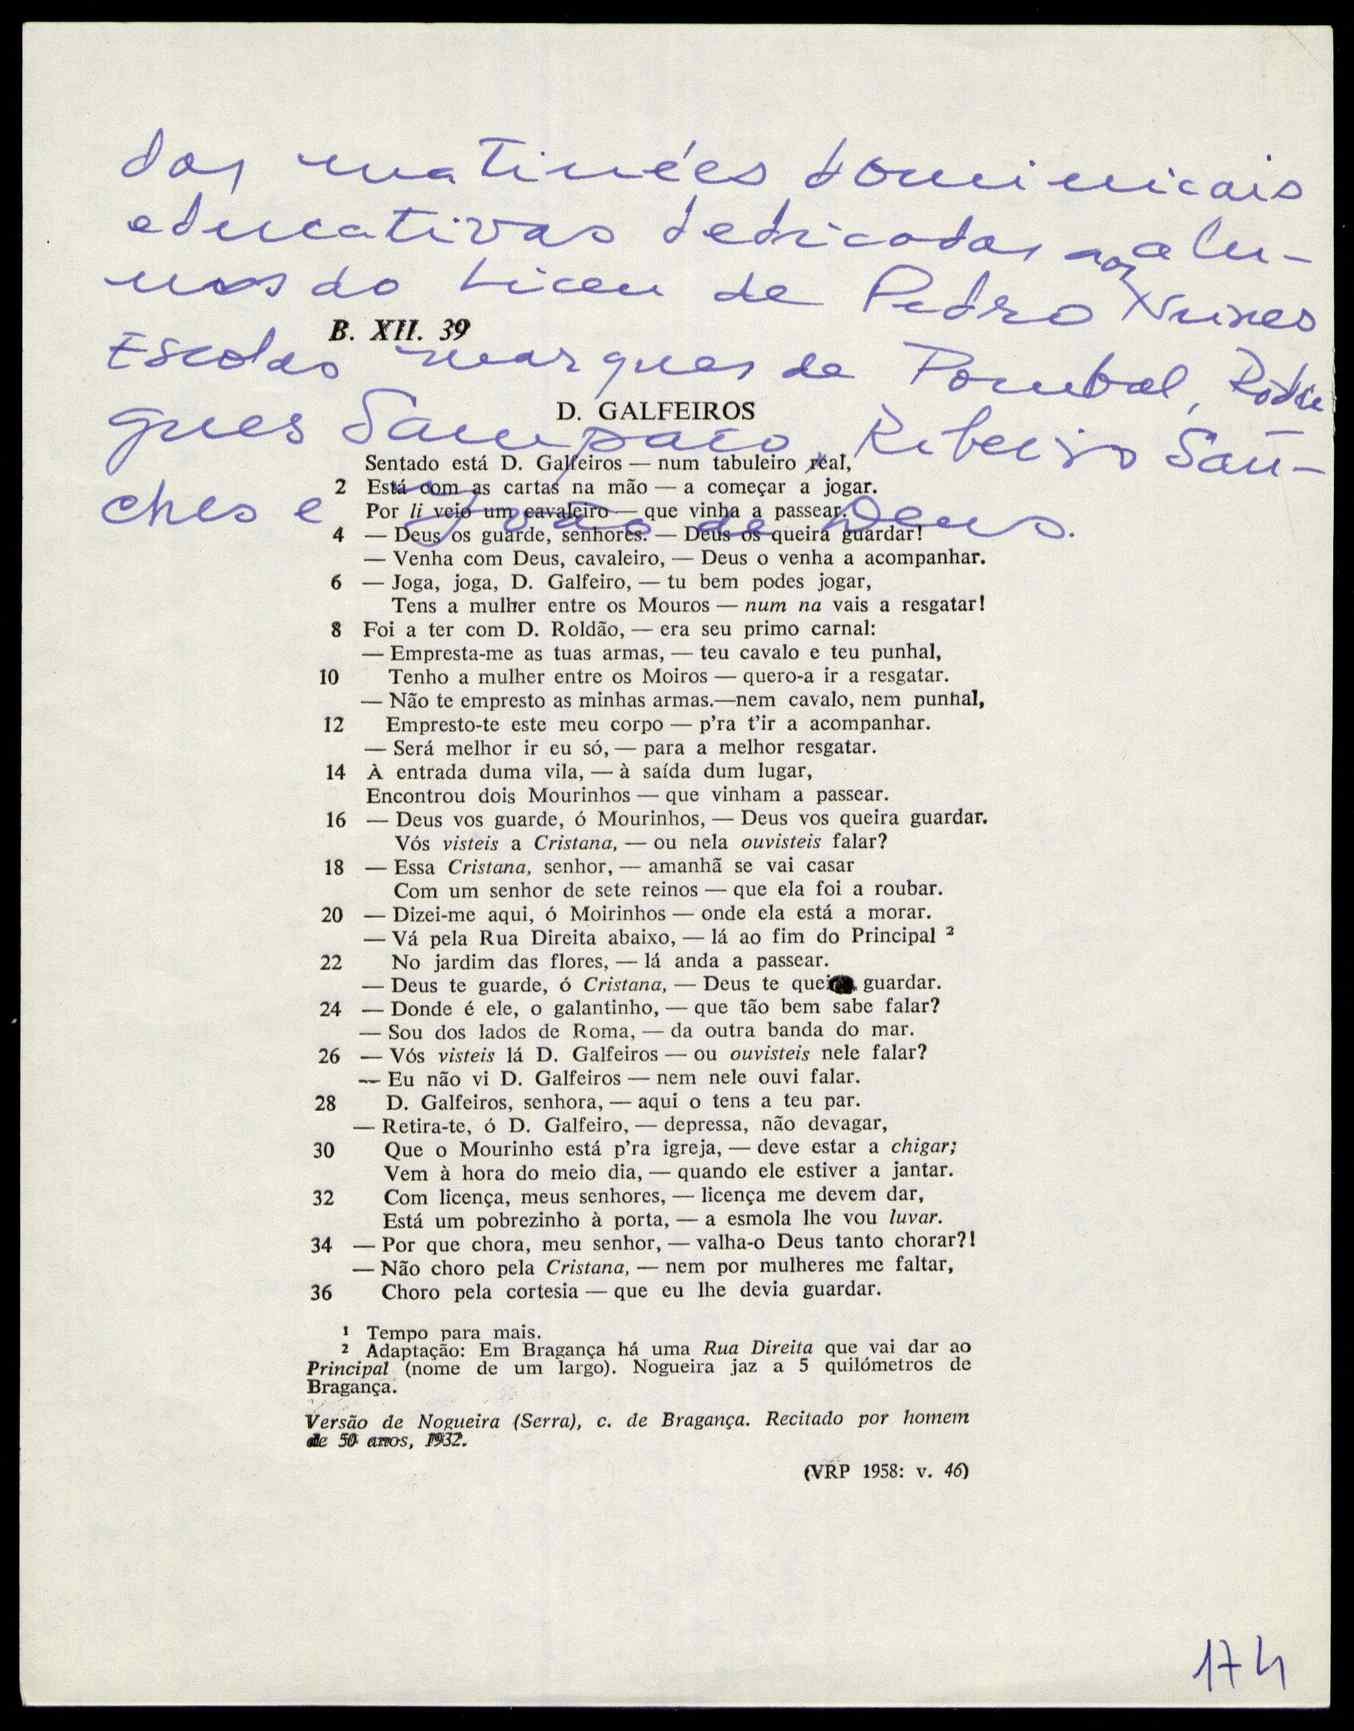 das matinées dominicais
educativas dedicadas aos alu-
nos do Liceu de Pedro Nunes
B. XII. 39
Escolas marques de Pombal, Rodri
D. GALFEIROS
gues Sampaio, Ribeiro San-
Sentado está D. Galfeiros — num tabuleiro real,
2 Está com as cartas na mão — a começar a jogar.
ches e João de Deus.
Por li veio um cavaleiro — que vinha a passear.
4 — Deus os guarde, senhores. — Deus os queira guardar!
— Venha com Deus, cavaleiro, — Deus o venha a acompanhar.
6 — Joga, joga, D. Galfeiro, — tu bem podes jogar,
Tens a mulher entre os Mouros — num na vais a resgatar!
8 Foi a ter com D. Roldão, — era seu primo carnal:
— Empresta-me as tuas armas, — teu cavalo e teu punhal,
10 Tenho a mulher entre os Moiros — quero-a ir a resgatar.
— Não te empresto as minhas armas.—nem cavalo, nem punhal,
12 Empresto-te este meu corpo — p'ra t'ir a acompanhar.
— Será melhor ir eu só, — para a melhor resgatar.
14 À entrada duma vila, — à saída dum lugar,
Encontrou dois Mourinhos — que vinham a passear.
16 — Deus vos guarde, ó Mourinhos, — Deus vos queira guardar.
Vós visteis a Cristana, — ou nela ouvisteis falar?
18 — Essa Cristana, senhor, — amanhã se vai casar
Com um senhor de sete reinos — que ela foi a roubar.
20 — Dizei-me aqui, ó Moirinhos — onde ela está a morar.
— Vá pela Rua Direita abaixo, — lá ao fim do Principal ²
22 No jardim das flores, — lá anda a passear.
— Deus te guarde, ó Cristana, — Deus te queira guardar.
24 — Donde é ele, o galantinho, — que tão bem sabe falar?
— Sou dos lados de Roma, — da outra banda do mar.
26 — Vós visteis lá D. Galfeiros — ou ouvisteis nele falar?
— Eu não vi D. Galfeiros — nem nele ouvi falar.
28 D. Galfeiros, senhora, — aqui o tens a teu par.
— Retira-te, ó D. Galfeiro, — depressa, não devagar,
30 Que o Mourinho está p'ra igreja, — deve estar a chigar;
Vem à hora do meio dia, — quando ele estiver a jantar.
32 Com licença, meus senhores, — licença me devem dar,
Está um pobrezinho à porta, — a esmola lhe vou luvar.
34 — Por que chora, meu senhor, — valha-o Deus tanto chorar?!
— Não choro pela Cristana, — nem por mulheres me faltar,
36 Choro pela cortesia — que eu lhe devia guardar.
¹ Tempo para mais.
² Adaptação: Em Bragança há uma Rua Direita que vai dar ao
Principal (nome de um largo). Nogueira jaz a 5 quilómetros de
Bragança.
Versão de Nogueira (Serra), c. de Bragança. Recitado por homem
de 50 anos, 1932.
(VRP 1958: v. 46)
174